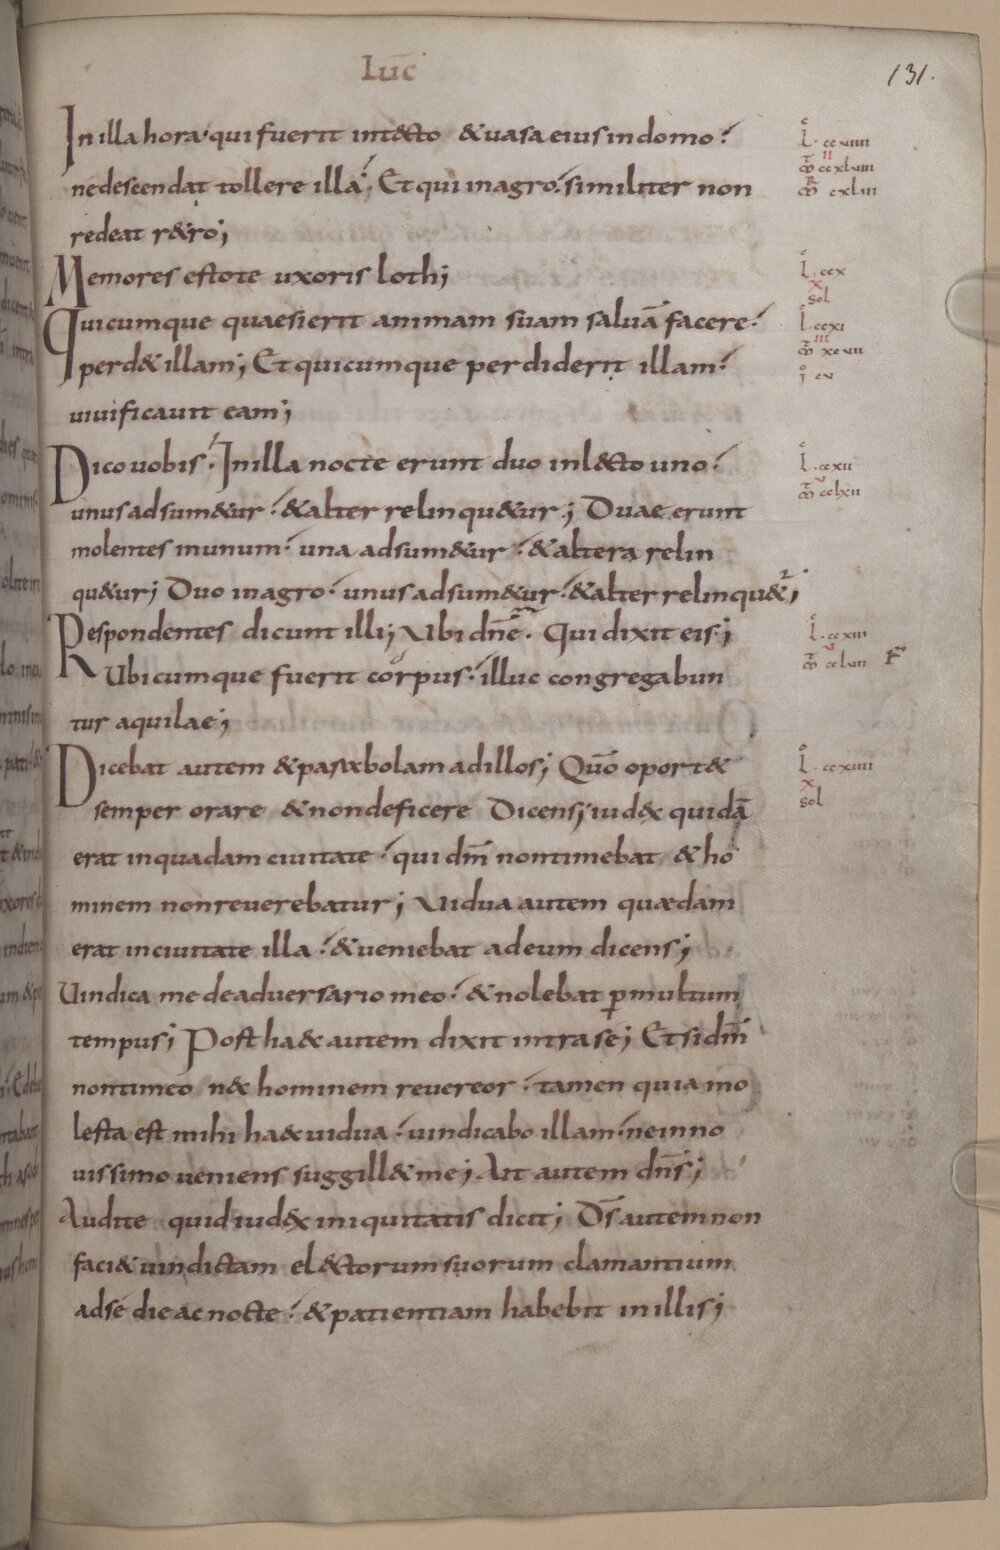 Luc̄
131.
In illa hora· qui fuerit int&cto & uasa eius in domo·
ne descendat tollere illā· Et qui in agro· similiter non
redeat r&ro;
Memores estote uxoris loth;
Quicumque quaesierit animam suam saluā facere·
perd& illam; Et quicumque perdiderit illam·
uiuificauit eam;
Dico uobis· In illa nocte erunt duo in l&cto uno·
unus adsum&ur· & alter relinqu&ur; Duae erunt
molentes in unum· una adsum&ur· & altera relin
qu&ur; Duo in agro· unus adsum&ur· & alter relinqu&ur;
Respondentes dicunt illi; Ubi dn̄e· Qui dixit eis;
Ubicumque fuerit corpus· illuc congregabun
tur aquilae;
Dicebat autem & parabolam ad illos; Quō oport&
semper orare & non deficere Dicens; iud&x quidā
erat in quadam ciuitate· qui dm̄ non timebat & ho
minem non reuerebatur; Uidua autem quædam
erat in ciuitate illa· & ueniebat ad eum dicens;
Uindica me de aduersario meo· & nolebat p̲ multum
tempus; Post ha&c autem dixit intra se; Et si dm̄
non timeo n&c hominem reuereor· tamen quia mo
lesta est mihi ha&c uidua· uindicabo illam· ne in no
uissimo ueniens suggill& me; Ait autem dn̄s;
Audite quid iud&x iniquitatis dicit; Ds̄ autem non
faci& uindictam el&ctorum suorum clamantium
ad se die ac nocte· & patientiam habebit in illis;
L· ccviiii
II
m̄ ccxlviii
m̄ cxliii
L· ccx
X
sol
L· ccxi
III
m̄ xcvii
i cv
L· ccxii
V
m̄ cclxii
L· ccxiii
m̄ cclvii
F
L· ccxiiii
X
sol